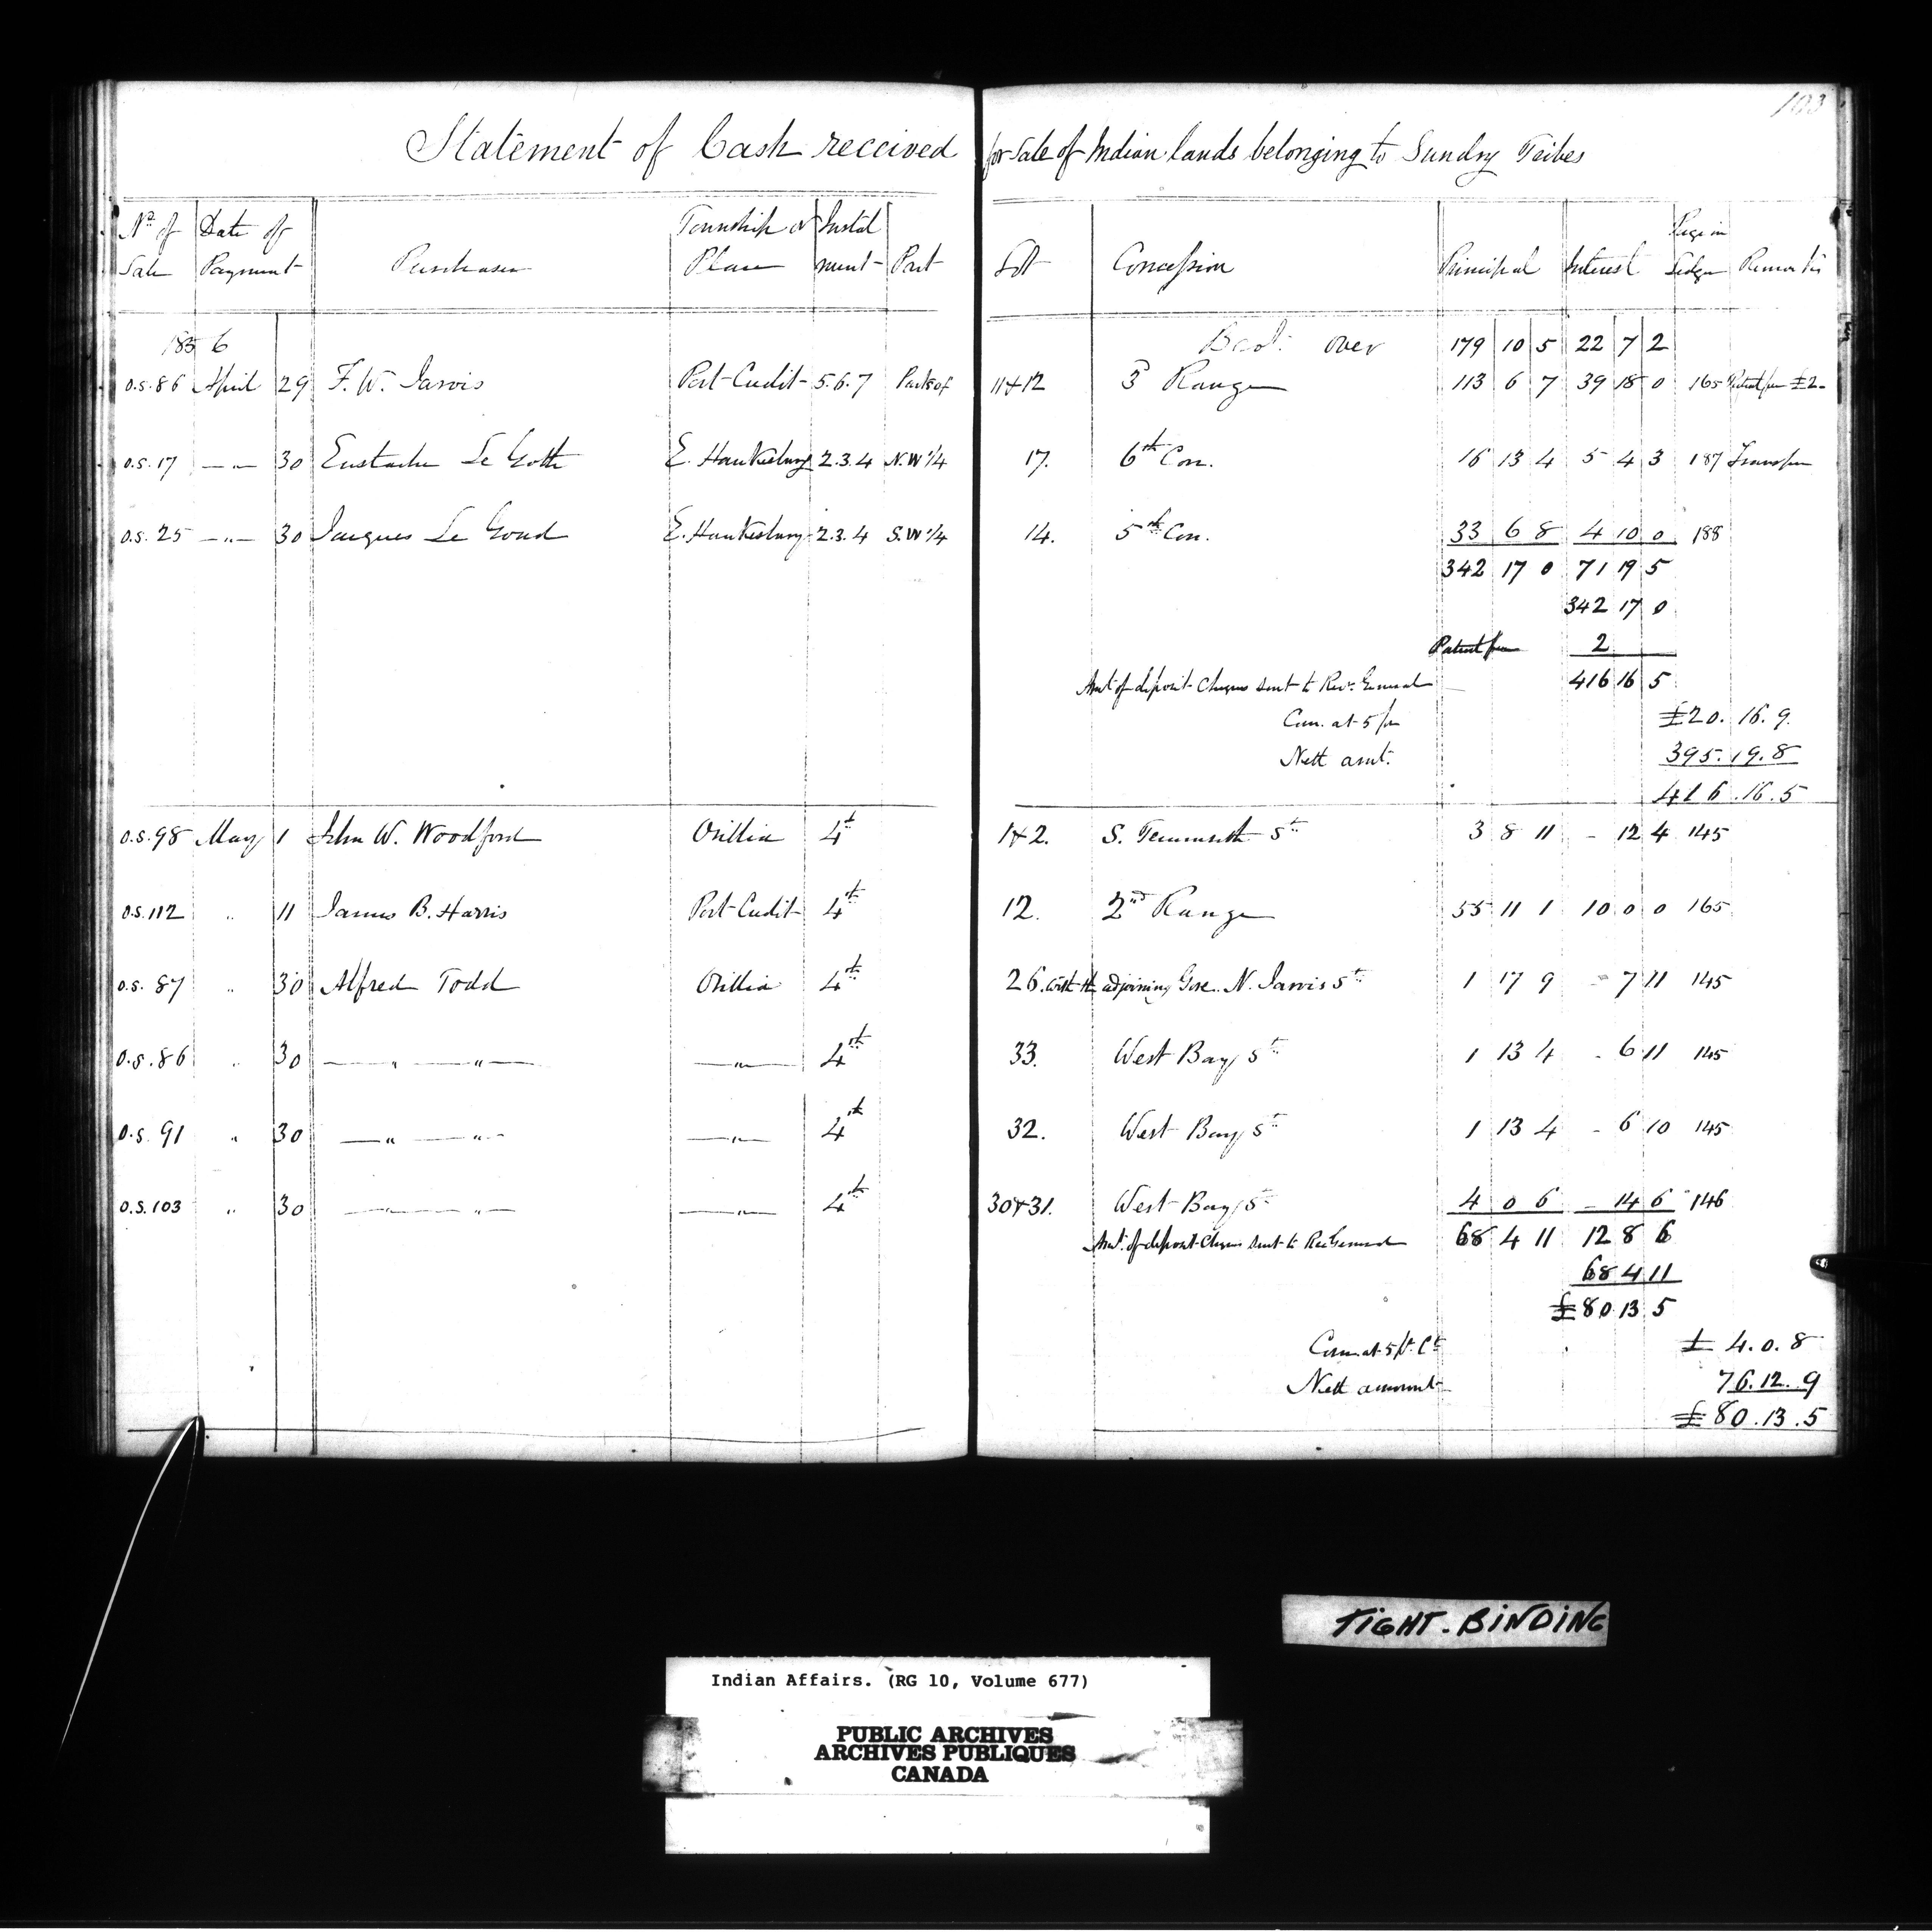 103
Statement of Cash received for Sale of Indian lands belonging to Sundry Tribes
No. of Sale Date of Payment Purchaser Township or Place Instalment Part Lot Concession Principal Interest Page in Ledger Remarks
1856
Brot. over 179 10 5 22 7 2
O.S. 86 April 29 F. W. Jarvis Port-Credit 5.6.7 Parts of 11 & 12 3 Range 113 6 7 39 18 0 165 Patent fee £2-
O.S. 17 —"— 30 Eustache Le E. Hawkesbury 2.3.4 N.W 1/4 17. 6th Con. 16 13 4 5 4 3 187
O.S. 25 —"— 30 Jacques Le E. Hawkesbury 2.3.4 S.W 1/4 14. 5th Con. 33 6 8 4 10 0 188
342 17 0 71 19 5
342 17 0
Patent fee 2
Amt of deposit Cheques sent to Recr. General 416 16 5
Com. at 5 £20. 16. 9.
Nett amt. 395. 19. 8
416. 16. 5
O.S. 98 May 1 John W. Woodford Orillia 4th 1 & 2. S. Tecumseth St 3 8 11 - 12 4 145
O.S. 112 " 11 James B. Harris Port-Credit 4th 12. 2nd Range 55 11 1 10 0 0 165
O.S. 87 " 30 Alfred Todd Orillia 4th 26. with the adjoining Gore. N. Jarvis St 1 17 9 - 7 11 145
O.S. 86 " 30 — " — " — — " — 4th 33. West Bay St 1 13 4 - 6 11 145
O.S. 91 " 30 — " — " — — " — 4th 32. West Bay St 1 13 4 - 6 10 145
O.S. 103 " 30 — " — " — — " — 4th 30 & 31. West Bay St 4 0 6 - 14 6 146
Amt. of deposit Cheques sent to Rec General 68 4 11 12 8 6
68 4 11
£80 13 5
Com. at 5 pr. Ct £ 4. 0. 8
Nett amount 76. 12. 9
£80. 13. 5
TIGHT. BINDING
Indian Affairs. (RG 10, Volume 677)
PUBLIC ARCHIVES
ARCHIVES PUBLIQUES
CANADA